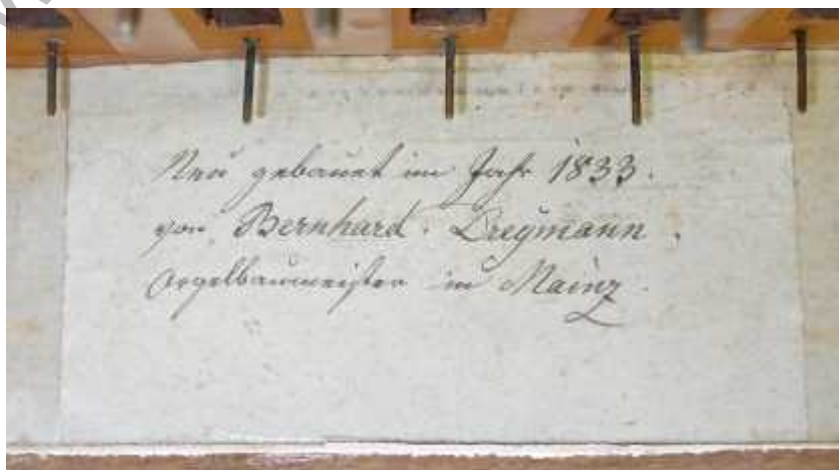 Neu gebauet im Jahr 1833.
von Bernhard Dreymann.
Orgelbaumeister in Mainz.